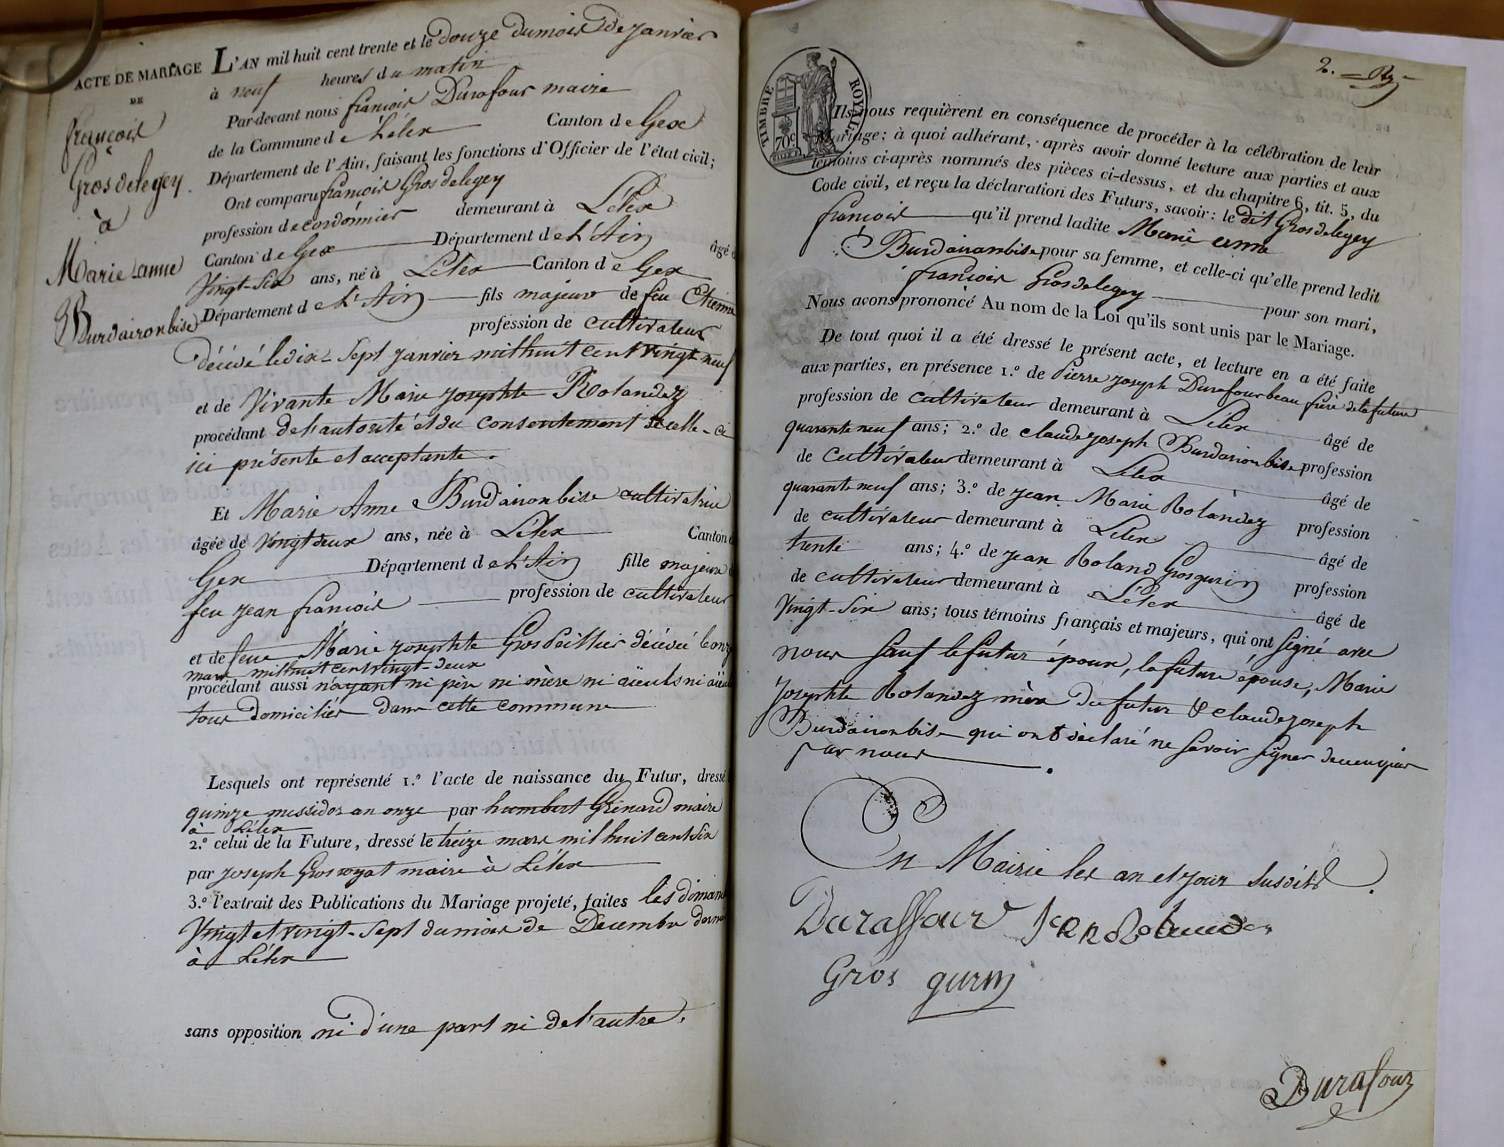 ACTE DE MARIAGE
DE
françois
Gros delegey.
à
Marie anne
Burdaironbise
L'AN mil huit cent trente et le douze du mois de janvier
à neuf heures du matin
Par-devant nous françois Durafour maire
de la Commune de Lélex Canton de Gex
Département de l'Ain, faisant les fonctions d'Officier de l'état civil;
Ont comparu françois Gros delegey
profession de cordonnier demeurant à Lélex
Canton de Gex Département de L'Ain âgé d
Vingt-Six ans, né à Lélex Canton de Gex
Département de L'Ain fils majeur de feu Etienne
profession de cultivateur
décédé le dix-Sept janvier mil huit cent vingt-neuf
et de Vivante Marie josephte Rolandez
procédant de l'autorité et du consentement de celle-ci
ici présente et acceptante.
Et Marie Anne Burdaironbise cultivatrice
âgée de Vingt deux ans, née à Lélex Canton d
Gex Département de L'Ain fille majeure d
feu jean francois profession de cultivateur
et de feue Marie josephte Grospeillier décédée le onz
mars mil huit cent vingt-deux
procédant aussi n'ayant ni père ni mère ni aïeuls ni aïeu
tous domiciliés dans cette commune
Lesquels ont représenté 1.° l'acte de naissance du Futur, dressé
quinze messidor an onze par humbert Grenard maire
à Lélex
2.° celui de la Future, dressé le treize mars mil huit cent Six
par joseph Grosroyat maire à Lélex
3.° l'extrait des Publications du Mariage projeté, faites les diman
Vingt et vingt-Sept du mois de Decembre dern
à Lélex
sans opposition ni d'une part ni de l'autre.
2.
TIMBRE ROYAL
70c
Ils nous requièrent en conséquence de procéder à la célébration de leur
Mariage; à quoi adhérant, après avoir donné lecture aux parties et aux
témoins ci-après nommés des pièces ci-dessus, et du chapitre 6, tit. 5, du
Code civil, et reçu la déclaration des Futurs, savoir: le dit Gros delegey
françois qu'il prend ladite Marie anne
Burdaironbise pour sa femme, et celle-ci qu'elle prend ledit
françois Gros delegey pour son mari,
Nous avons prononcé Au nom de la Loi qu'ils sont unis par le Mariage.
De tout quoi il a été dressé le présent acte, et lecture en a été faite
aux parties, en présence 1.° de Pierre joseph Durafour beau frère de la future
profession de cultivateur demeurant à Lélex âgé de
quarante neuf ans; 2.° de claude joseph Burdaironbise profession
de cultivateur demeurant à Lélex âgé de
quarante neuf ans; 3.° de jean Marie Rolandez profession
de cultivateur demeurant à Lélex âgé de
trente ans; 4.° de jean Roland Grosgurin profession
de cultivateur demeurant à Lélex âgé de
Vingt-Six ans; tous témoins français et majeurs, qui ont signé avec
nous Sauf le futur époux, la future épouse, Marie
josephte Rolandez mère du futur & claude joseph
Burdaironbise qui ont déclaré ne savoir signer de ce enquis
par nous.
En Mairie les an et jour susdits.
Duraffour
Gros gurin
Durafour